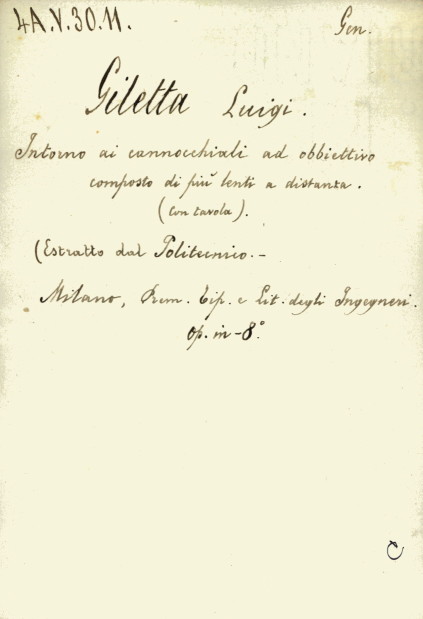 4A.V.30.11. Gen.
Giletta Luigi.
Intorno ai cannocchiali ad obbiettivo
composto di più lenti a distanza.
(Con tavola).
(Estratto dal Politecnico.-
Milano, Prem. Tip. e Lit. degli Ingegneri.
Op. in-8°.